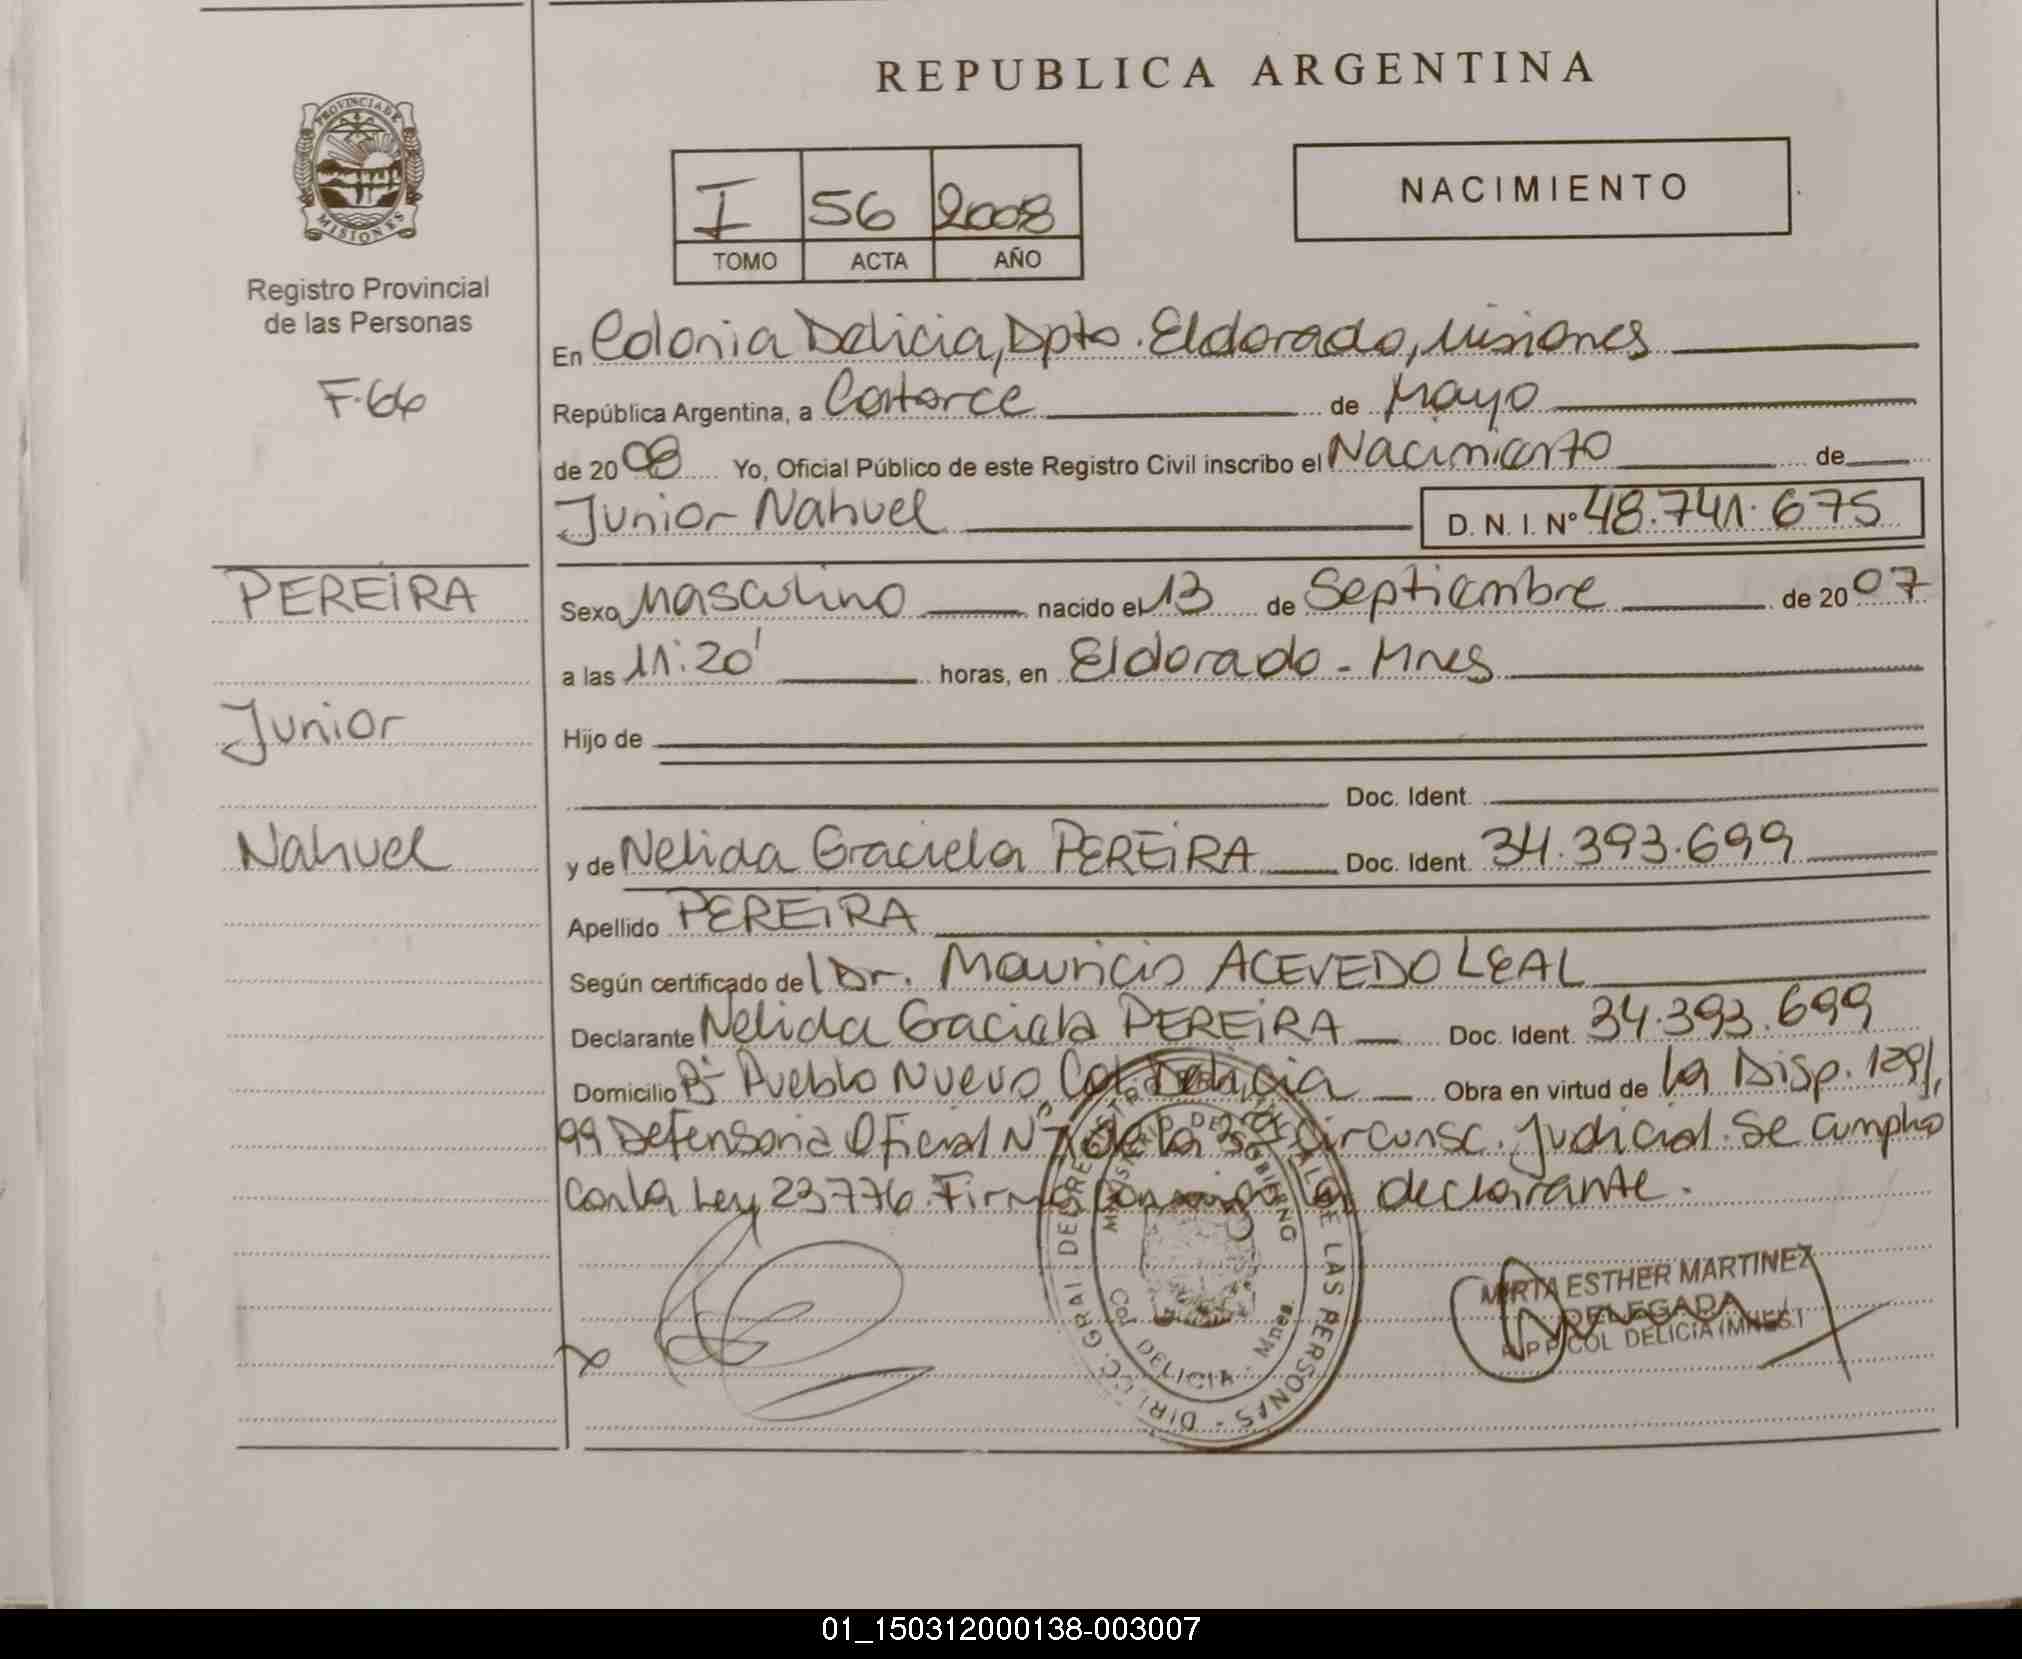 REPUBLICA ARGENTINA
PROVINCIA DE
MISIONES
Registro Provincial
de las Personas
F.66
I 56 2008
TOMO ACTA AÑO
NACIMIENTO
En Colonia Delicia, Dpto. Eldorado, Misiones
República Argentina, a Catorce de Mayo
de 2008 Yo, Oficial Público de este Registro Civil inscribo el Nacimiento de
Junior Nahuel D. N. I. Nº 48.741.675
PEREIRA
Junior
Nahuel
Sexo Masculino nacido el 13 de Septiembre de 2007
a las 11:20' horas, en Eldorado - Mnes
Hijo de
Doc. Ident.
y de Nelida Graciela PEREIRA Doc. Ident. 34.393.699
Apellido PEREIRA
Según certificado del Dr. Mauricio ACEVEDO LEAL
Declarante Nelida Graciela PEREIRA Doc. Ident. 34.393.699
Domicilio Bº Pueblo Nuevo, Col. Delicia Obra en virtud de la Disp. 129/
99 Defensoria Oficial Nº de la 3º Circunsc. Judicial. Se cumplio
con la Ley 23776. Firma conmigo la declarante.
MINISTERIO DE GOBIERNO
DE LAS PERSONAS
DELICIA - Mnes.
MIRTA ESTHER MARTINEZ
DELEGADA
COL DELICIA (MNES.)
01_150312000138-003007